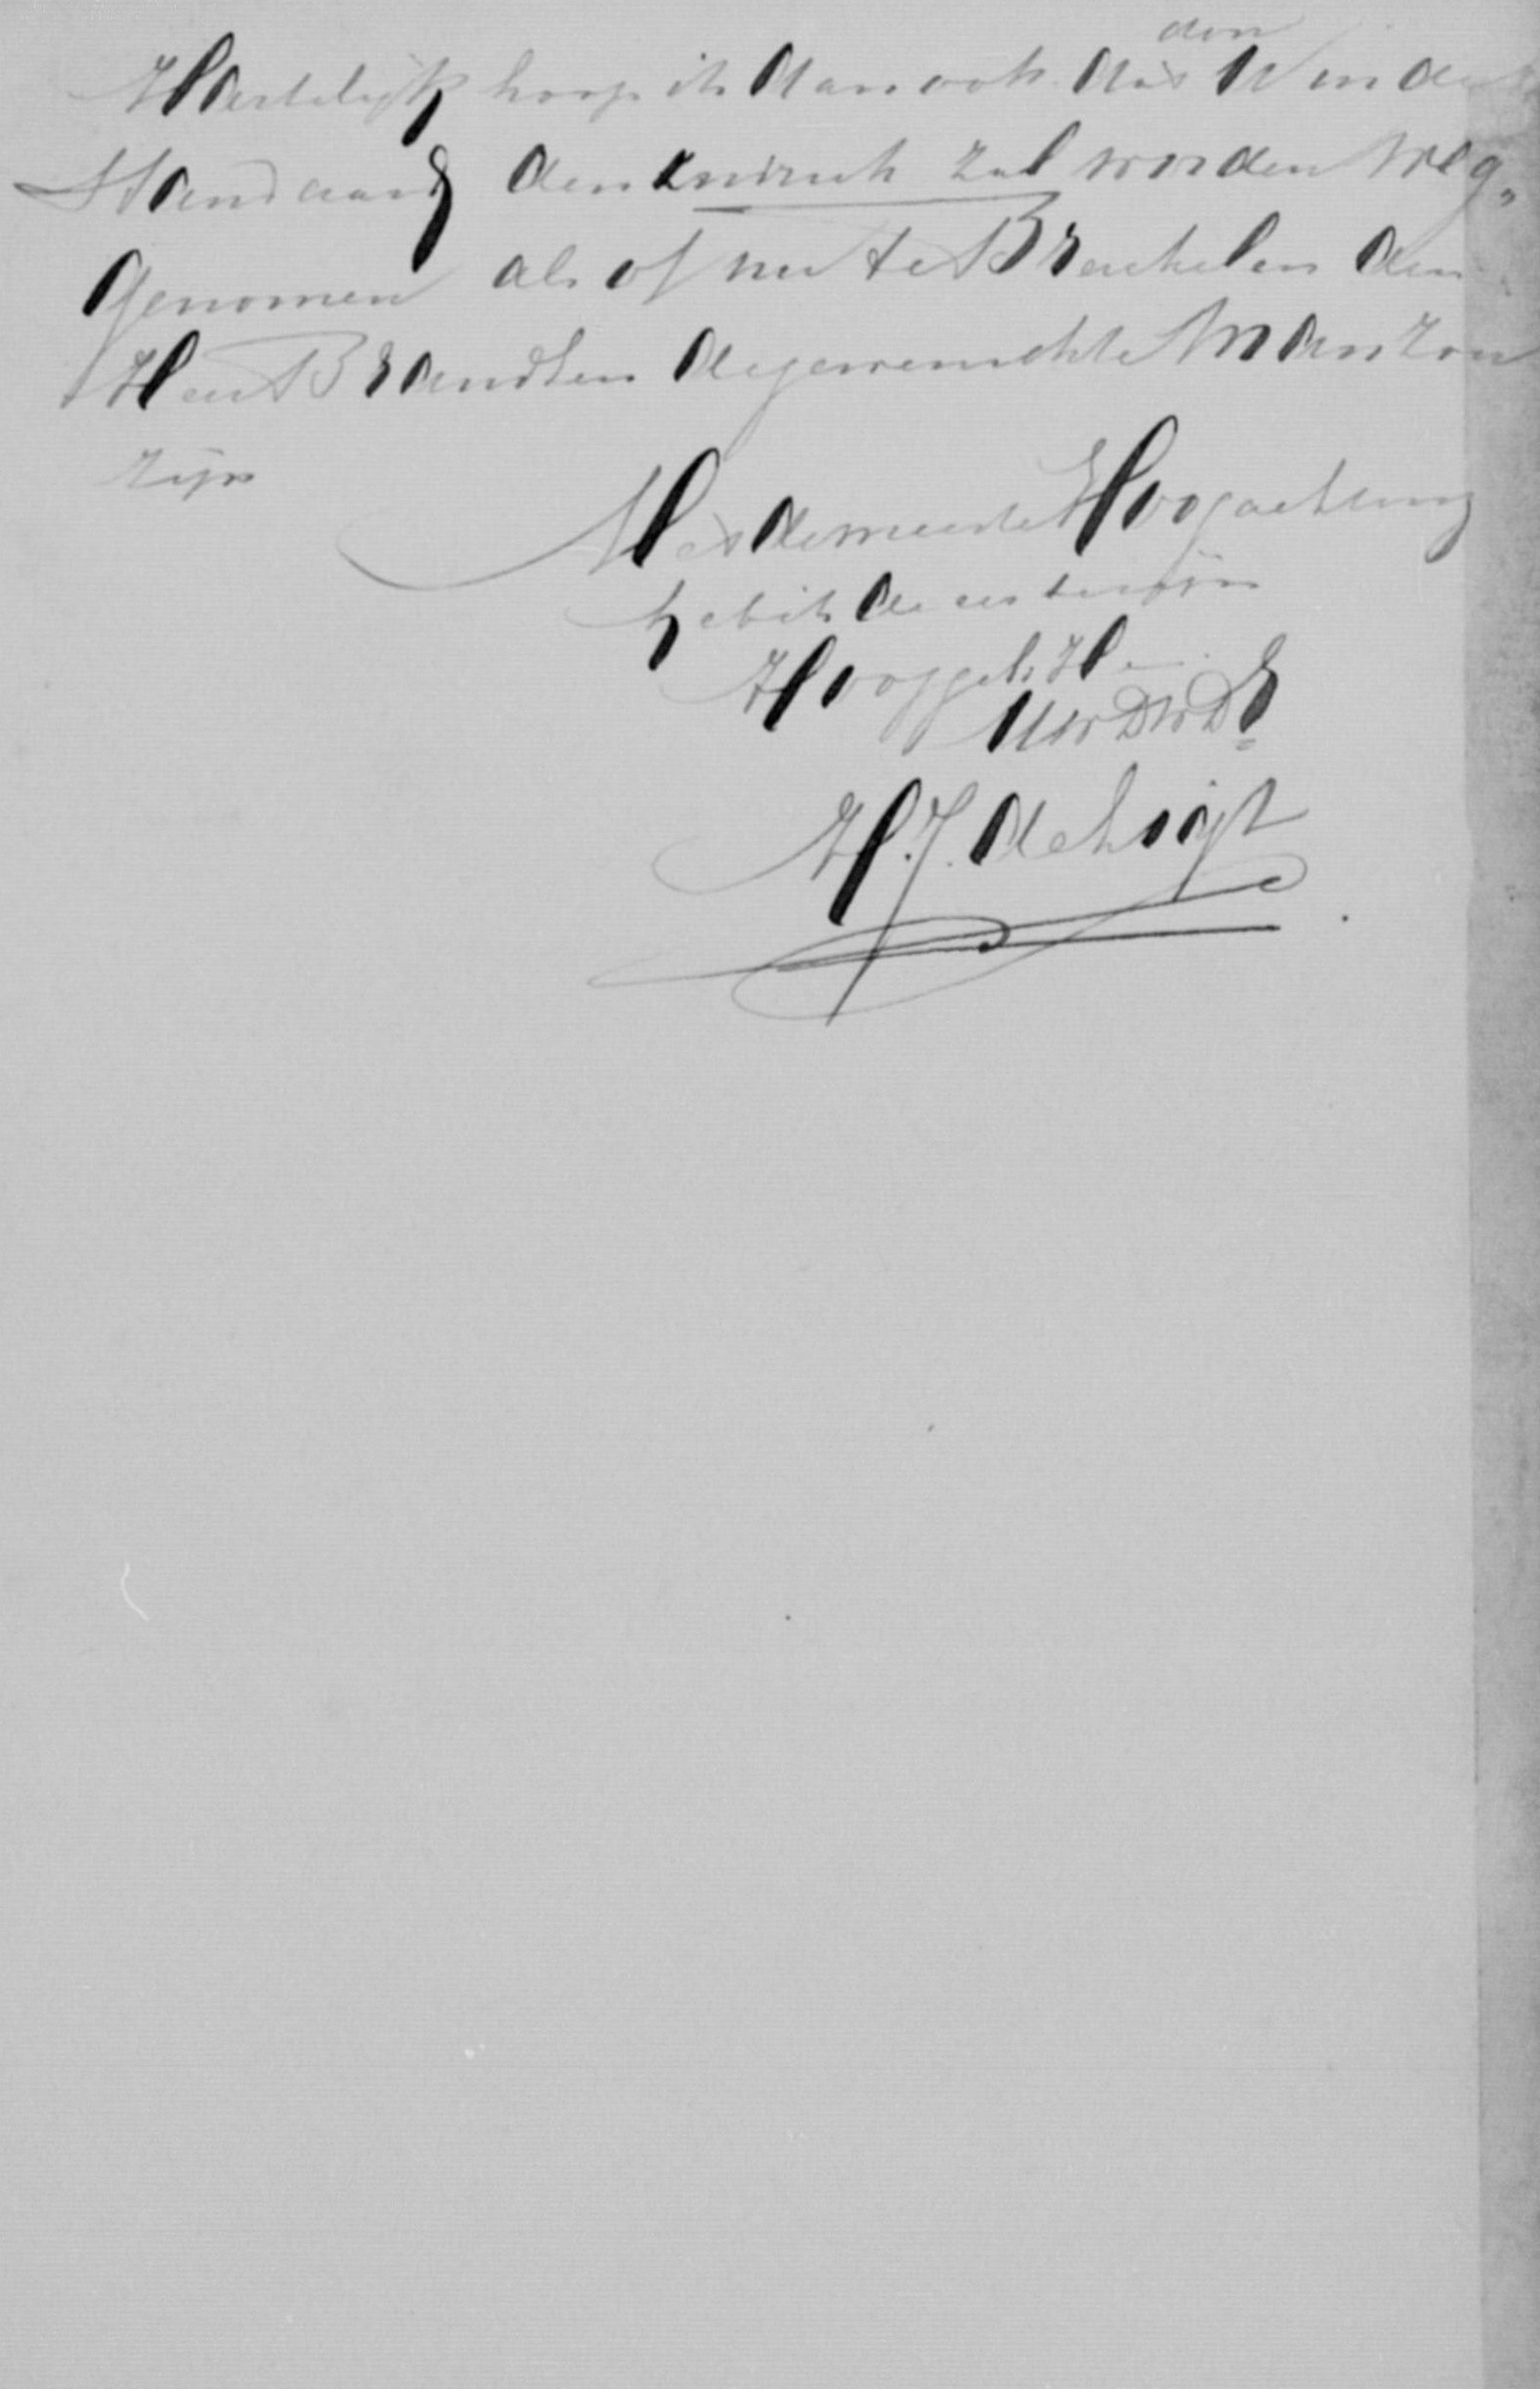 den
Hartelijk hoop ik dan ook dat
Standaard den indruk zal worden weg„
genomen als of nu te Brakel en den
Heer Brandsen de gewenschte Man zou
zijn
Met de meeste Hoogachting
heb ik de eer te zijn
Hooggeb. H
UwDwDr
H. J. de Voigt